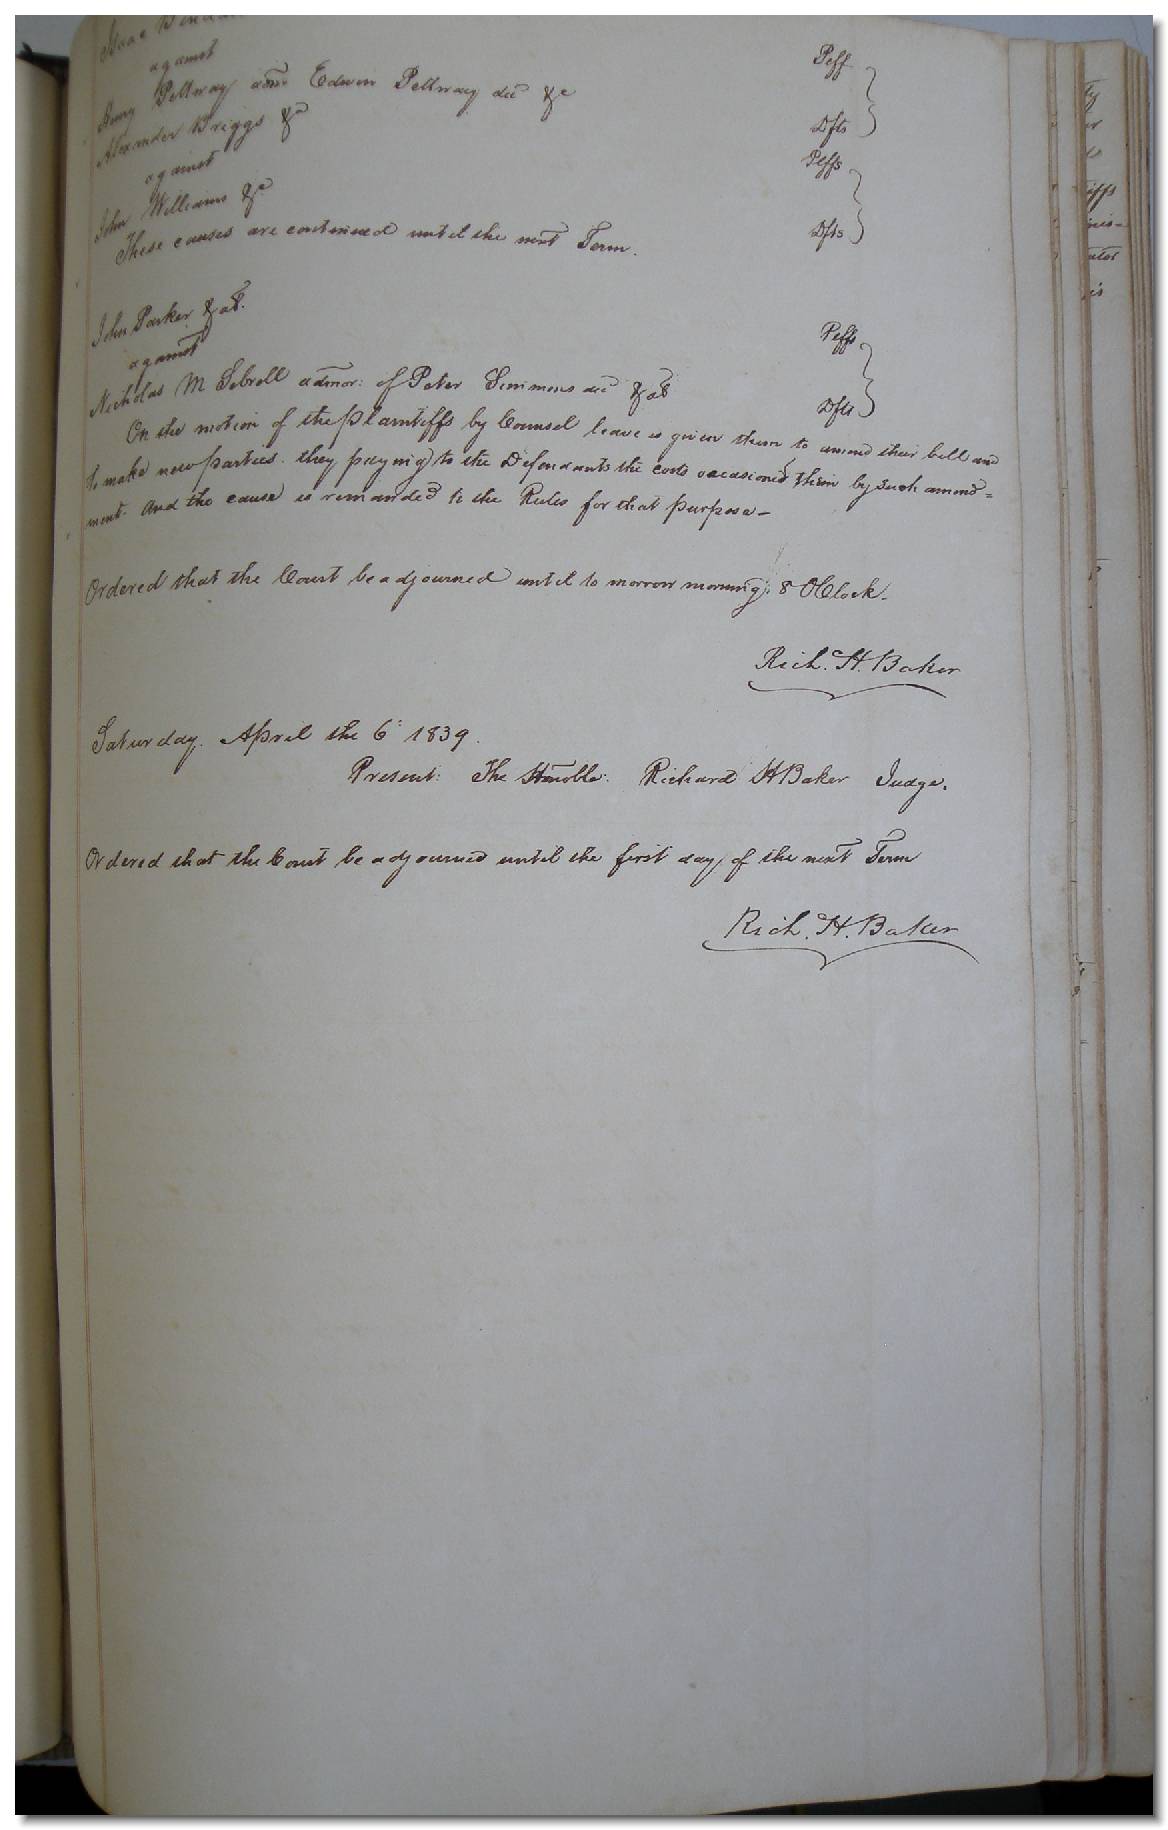 Isaac
against Peff
Amy Pettway adm. Edwin Pettway decd &c Dfts
Alexander Briggs &c Peffs
against
John Williams &c Dfts
These causes are continued until the next Term.
John Parker & als. Peffs
against
Nicholas M Sebrell admor: of Peter Simmons decd & als Dfts
On the motion of the plaintiffs by Counsel leave is given them to amend their bill and
to make new parties. they paying to the Defendants the costs occasioned them by such amend=
ment. And the cause is remanded to the Rules for that purpose—
Ordered that the Court be adjourned until to morrow morning 8 OClock.
Rich. H. Baker
Saturday. April the 6 1839.
Present: The Honoble: Richard H Baker Judge.
Ordered that the Court be adjourned until the first day of the next Term
Rich. H. Baker